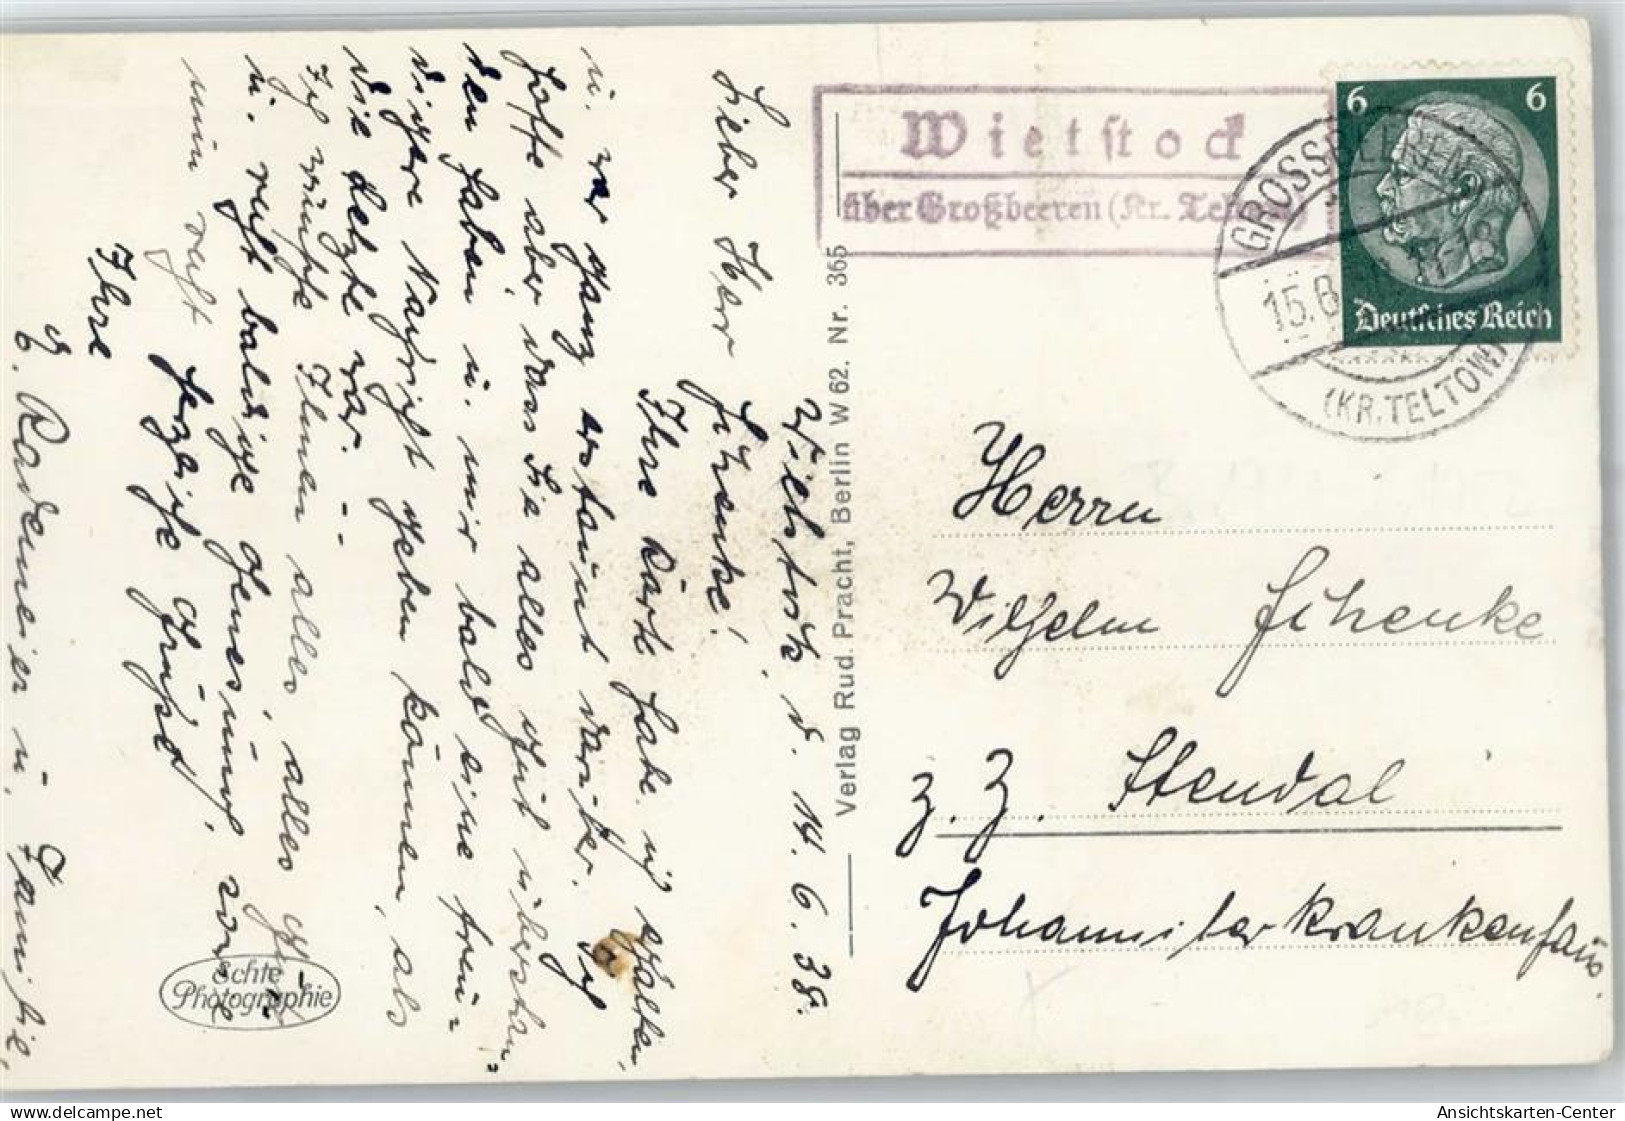 Wietstock, d. 14. 6. 38.
Lieber Herr Schenke!
Ihre Karte habe ich erhalten,
u. war ganz erstaunt darüber. Ich
hoffe aber dass Sie alles gut überstan=
den haben u. mir bald eine freu=
digere Nachricht geben können, als
die Letzte war. – –
Ich wünsche Ihnen alles, alles
u. recht baldige Genesung,
nun recht herzliche Grüße
Ihre
E. Rademeier u. Familie.
Echte
Photographie
Verlag Rud. Pracht, Berlin W 62. Nr. 365
Wietstock
über Großbeeren (Kr. Teltow)
GROSSBEEREN
15.6.
(KR. TELTOW)
6 6
Deutsches Reich
Herrn
Wilhelm Schenke
z. Z. Stendal
Johanniterkrankenhaus.
delcampe.net
Ansichtskarten-Center